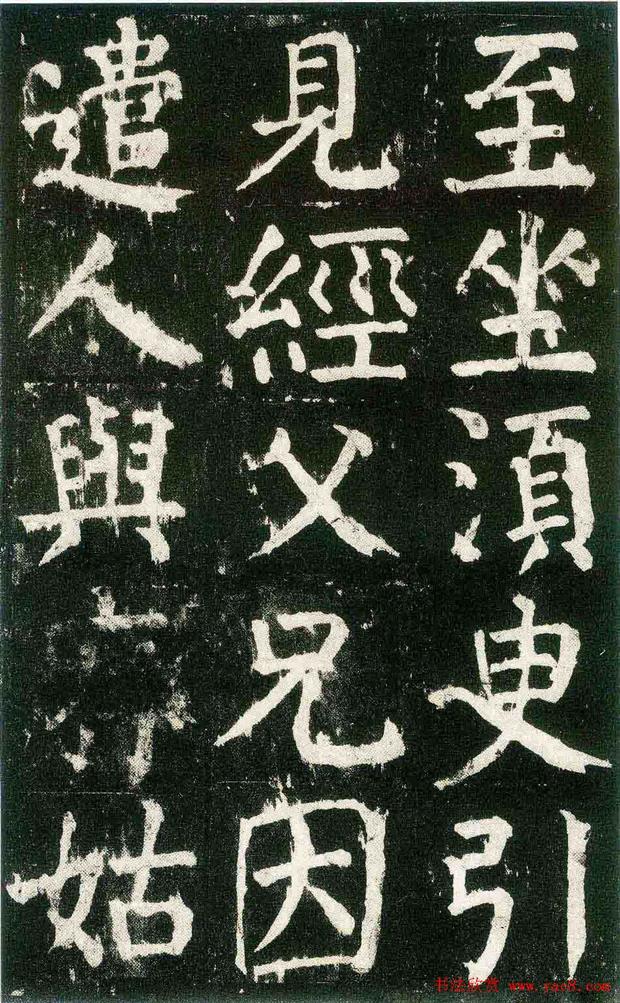 至坐須臾引
見經父兄因
遣人與姑
書法欣赏 www.yac8.com